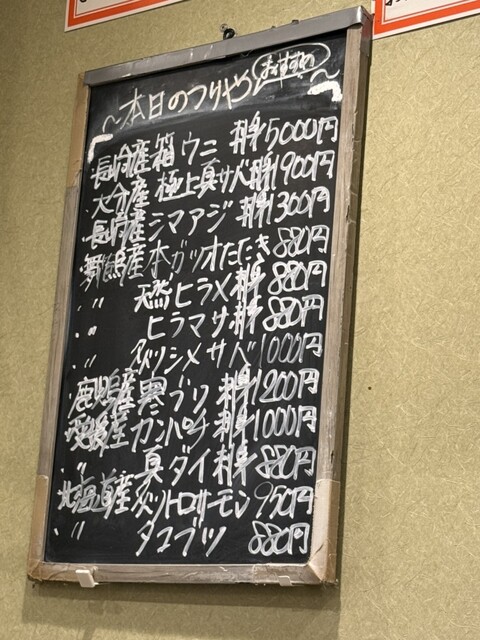 ～本日のつりや おすすめ～
・長崎産 箱ウニ 刺身 5000円
・大分産 極上真サバ刺身 1900円
・長崎産 シマアジ 刺身 1300円
・舞鶴産 本ガツオたたき 880円
・〃 天然ヒラメ刺身 880円
・〃 ヒラマサ刺身 880円
・〃 シメサバ 1000円
・鹿児島産 寒ブリ 刺身 1200円
・愛媛産 カンパチ 刺身 1000円
・〃 真ダイ 刺身 880円
・北海道産 トロサーモン 950円
・〃 タコブツ 880円